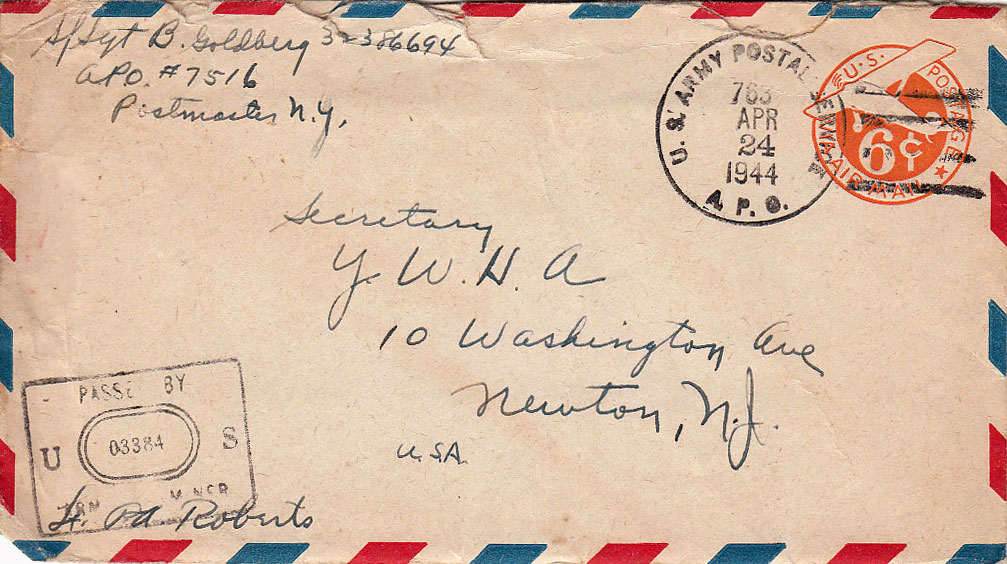 S/Sgt B. Goldberg 32386694
A.P.O. #7516
Postmaster N.Y.
U.S. ARMY POSTAL SERVICE
763
APR
24
1944
A. P. O.
U.S. POSTAGE
6¢
AIR MAIL
Secretary
Y. W. H. A
10 Washington Ave
Newton, N.J.
U.S.A.
PASSE BY
U 03384 S
Roberts